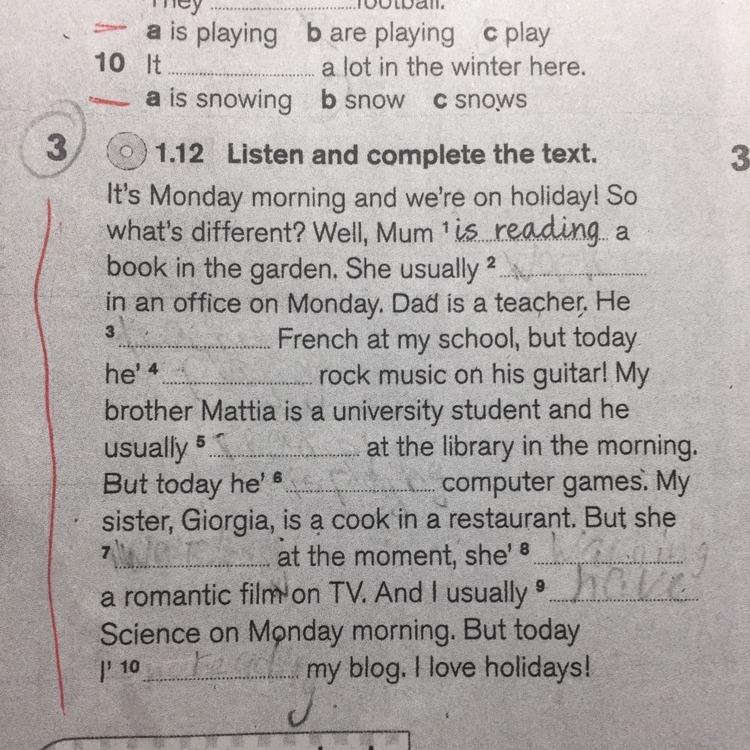 They ............ football.
a is playing b are playing c play
10 It ............ a lot in the winter here.
a is snowing b snow c snows
3 1.12 Listen and complete the text. 3
It's Monday morning and we're on holiday! So
what's different? Well, Mum ¹ is reading a
book in the garden. She usually ² ............
in an office on Monday. Dad is a teacher. He
³ ............ French at my school, but today
he' ⁴ ............ rock music on his guitar! My
brother Mattia is a university student and he
usually ⁵ ............ at the library in the morning.
But today he' ⁶ ............ computer games. My
sister, Giorgia, is a cook in a restaurant. But she
⁷ ............ at the moment, she' ⁸ ............
a romantic film on TV. And I usually ⁹ have
Science on Monday morning. But today
I' ¹⁰ ............ my blog. I love holidays!